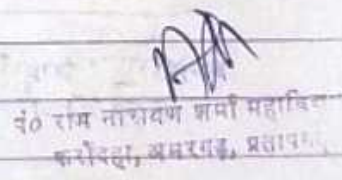 पं० राम नारायण शर्मा महाविद्या
करोंदहा, अमरगढ़, प्रतापग